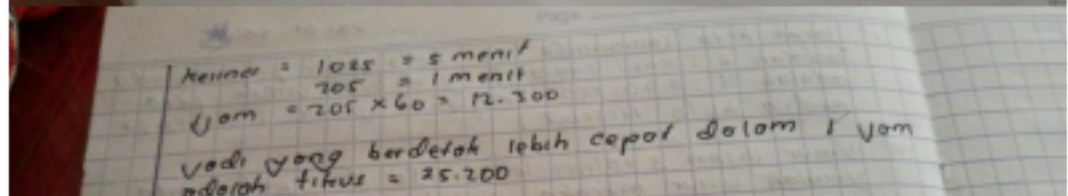 kelinci = 1025 = 5 menit
205 = 1 menit
Jam = 205 × 60 = 12.300
Jadi yang berdetak lebih cepat dalam 1 Jam
adalah tikus = 25.200